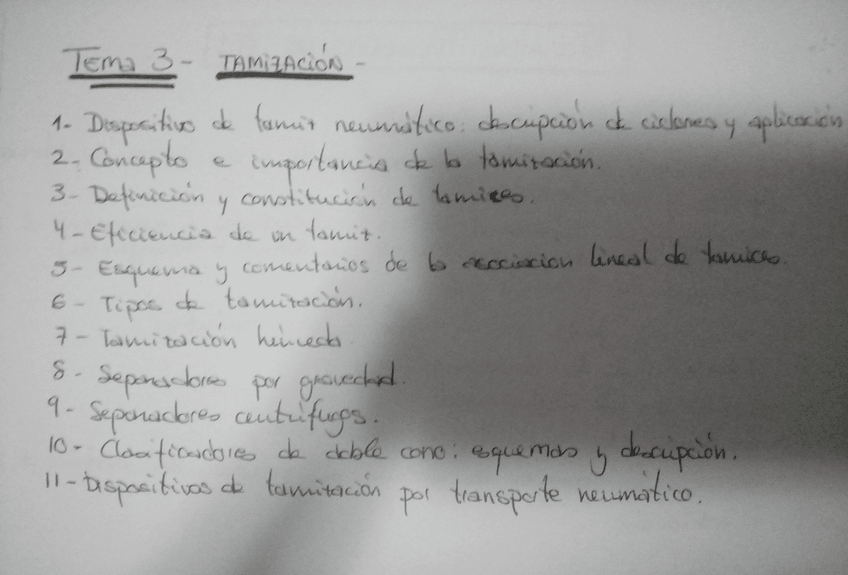 Tema 3 - TAMIZACIÓN -
1- Dispositivo de tamiz neumático: descripción de ciclones y aplicación
2- Concepto e importancia de la tamización.
3- Definición y constitución de tamices.
4- Eficiencia de un tamiz.
5- Esquema y comentarios de la asociación lineal de tamices.
6- Tipos de tamización.
7- Tamización húmeda.
8- Separadores por gravedad.
9- Separadores centrífugos.
10- Clasificadores de doble cono: esquemas y descripción.
11- Dispositivos de tamización por transporte neumático.